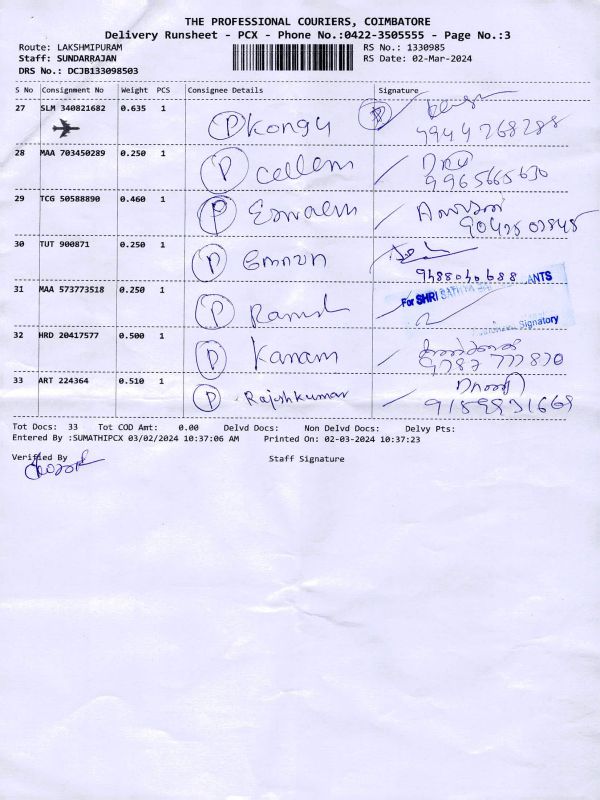 THE PROFESSIONAL COURIERS, COIMBATORE
Delivery Runsheet - PCX - Phone No.:0422-3505555 - Page No.:3
Route: LAKSHMIPURAM RS No.: 1330985
Staff: SUNDARRAJAN RS Date: 02-Mar-2024
DRS No.: DCJB133098503
S No Consignment No Weight PCS Consignee Details Signature
27 SLM 340821682 0.635 1 P Kongu
9944268288
28 MAA 703450289 0.250 1 P cellem
9965665630
29 TCG 50588890 0.460 1 P
30 TUT 900871 0.250 1 P
9488040688
31 MAA 573773518 0.250 1 P Ramesh
For SHRI ANTS
Signatory
32 HRD 20417577 0.500 1 P Kanam
9787777830
33 ART 224364 0.510 1 P Rajeshkumar
9189931669
Tot Docs: 33 Tot COD Amt: 0.00 Delvd Docs: Non Delvd Docs: Delvy Pts:
Entered By :SUMATHIPCX 03/02/2024 10:37:06 AM Printed On: 02-03-2024 10:37:23
Verified By Staff Signature